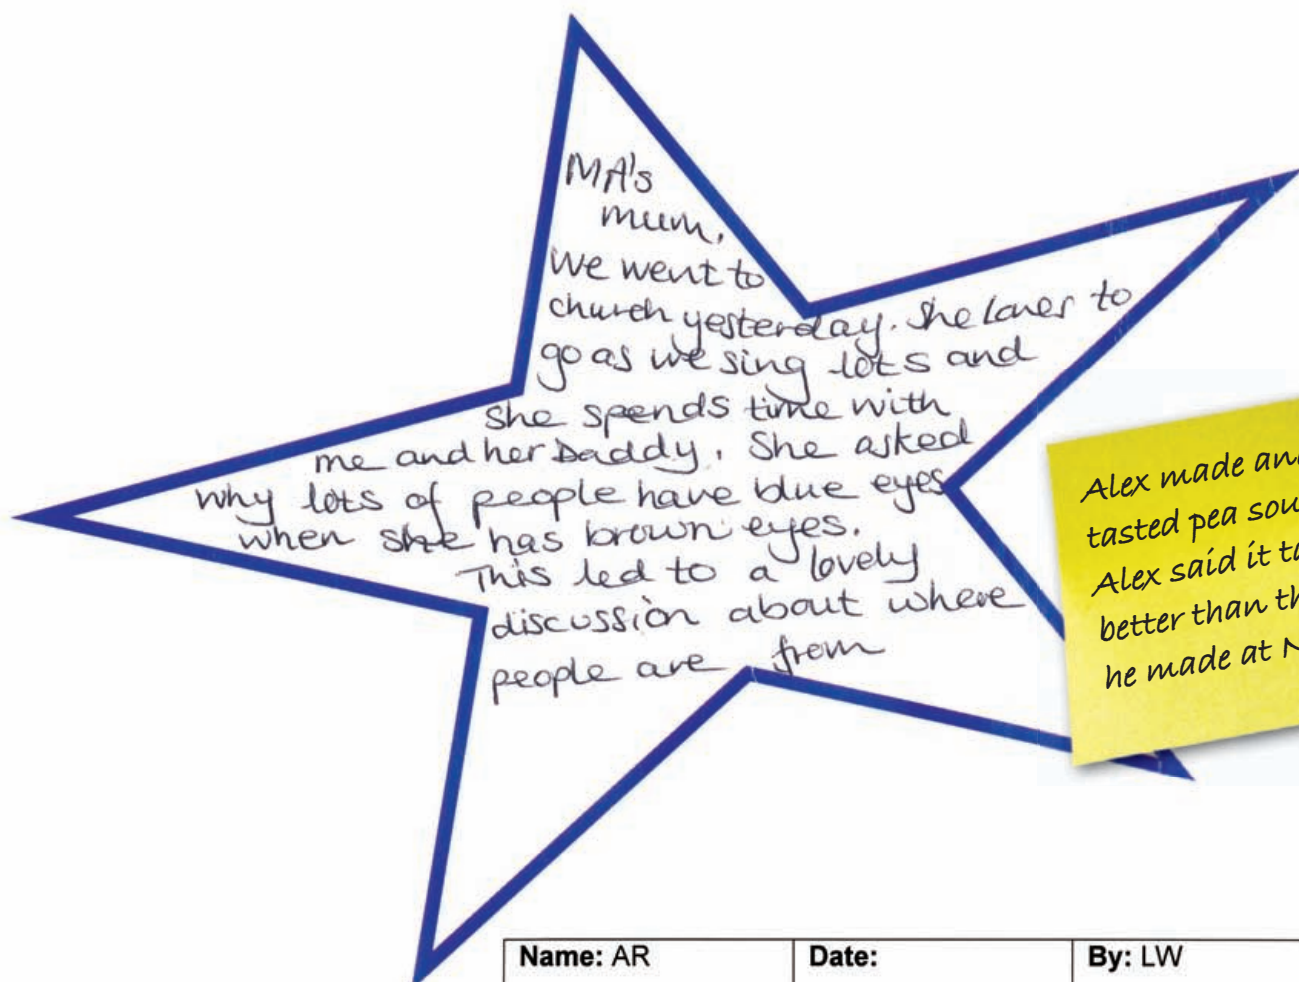 MA's
mum,
We went to
church yesterday. She loves to
go as we sing lots and
she spends time with
me and her Daddy. She asked
why lots of people have blue eyes
when she has brown eyes.
This led to a lovely
discussion about where
people are from
Alex made and
tasted pea sou
Alex said it ta
better than th
he made at N
Name: AR Date: By: LW